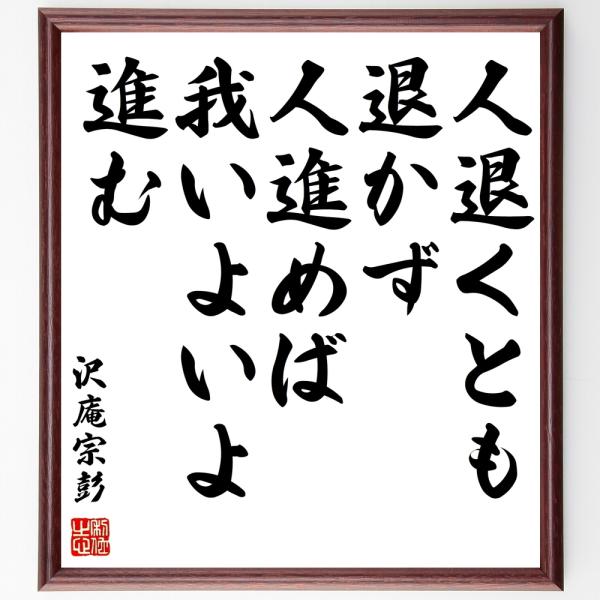 人退くとも
退かず
人進めば
我いよいよ
進む
沢庵宗彭